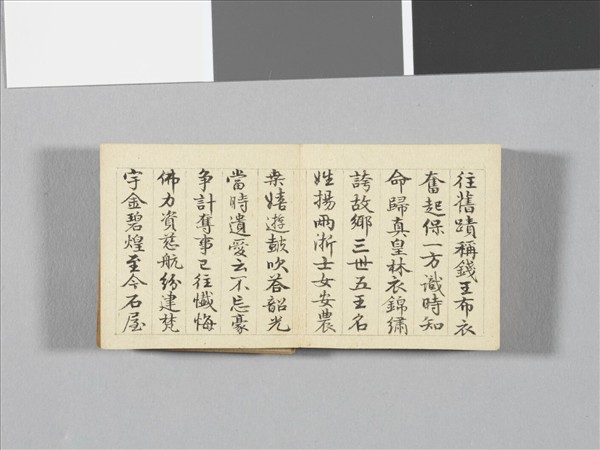 往舊蹟稱錢王布衣
奮起保一方識時知
命歸真皇林衣錦繡
誇故鄉三世五王名
姓揚兩浙士女安農
桒嬉遊鼓吹荅韶光
當時遺愛云不忘豪
争計奪事已往懴悔
佛力資慈航紛建梵
宇金碧煌至今石屋